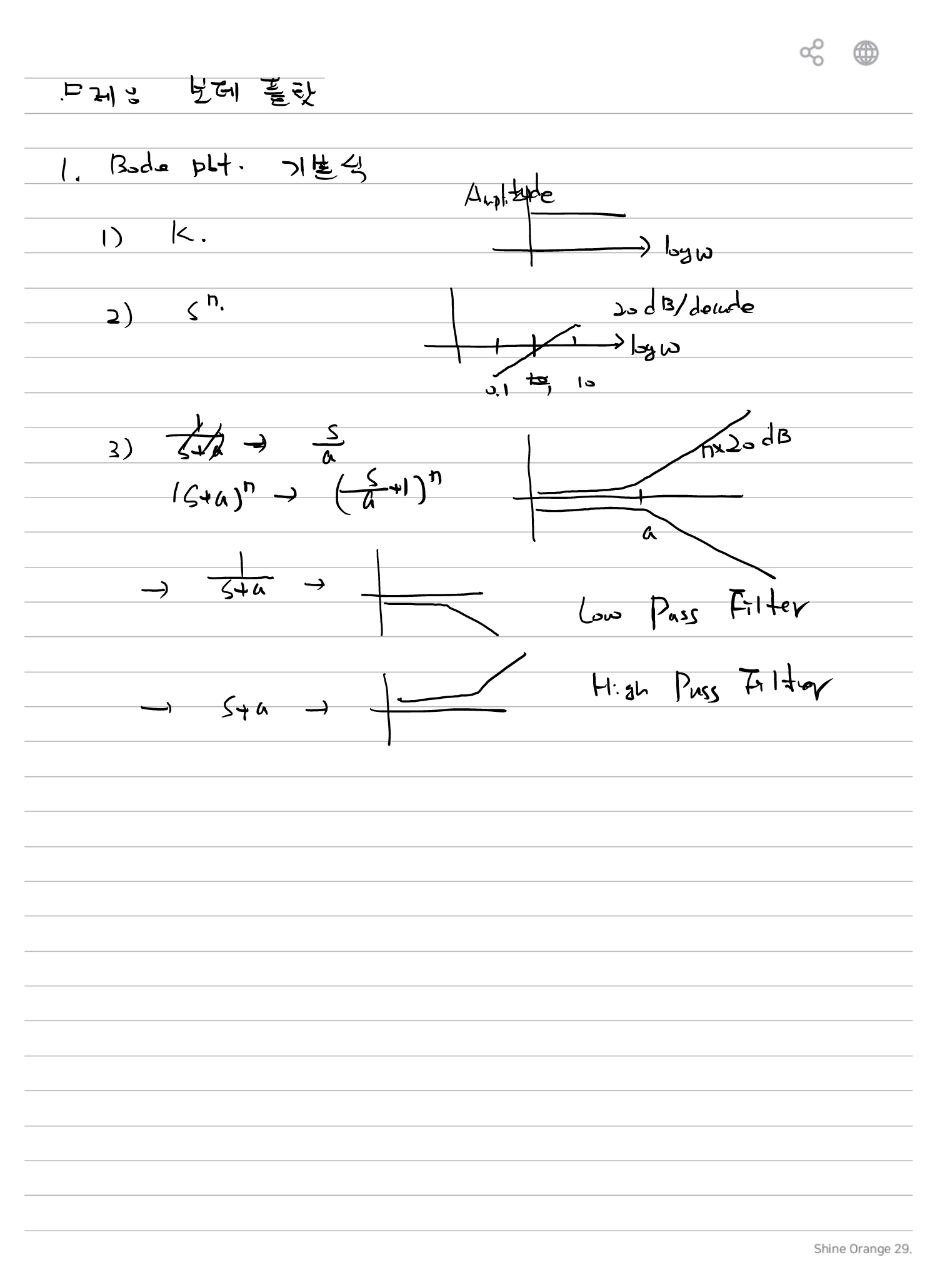 문제명 보데 플랏
1. Bode plot. 기본식
Amplitude
1) K.
log w
2) s^n.
20 dB/decade
log w
0.1 1 10
3) s/a
(s+a)^n → (s/a+1)^n
n×20 dB
a
→ 1/(s+a) →
Low Pass Filter
→ s+a →
High Pass Filter
Shine Orange 29.